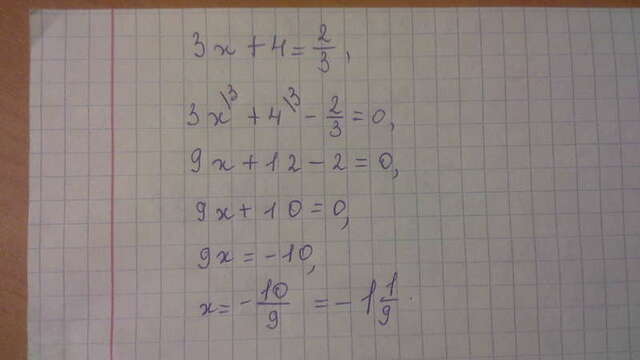 3x + 4 = 2/3,
3x\3 + 4\3 - 2/3 = 0,
9x + 12 - 2 = 0,
9x + 10 = 0,
9x = -10,
x = -10/9 = -1 1/9.